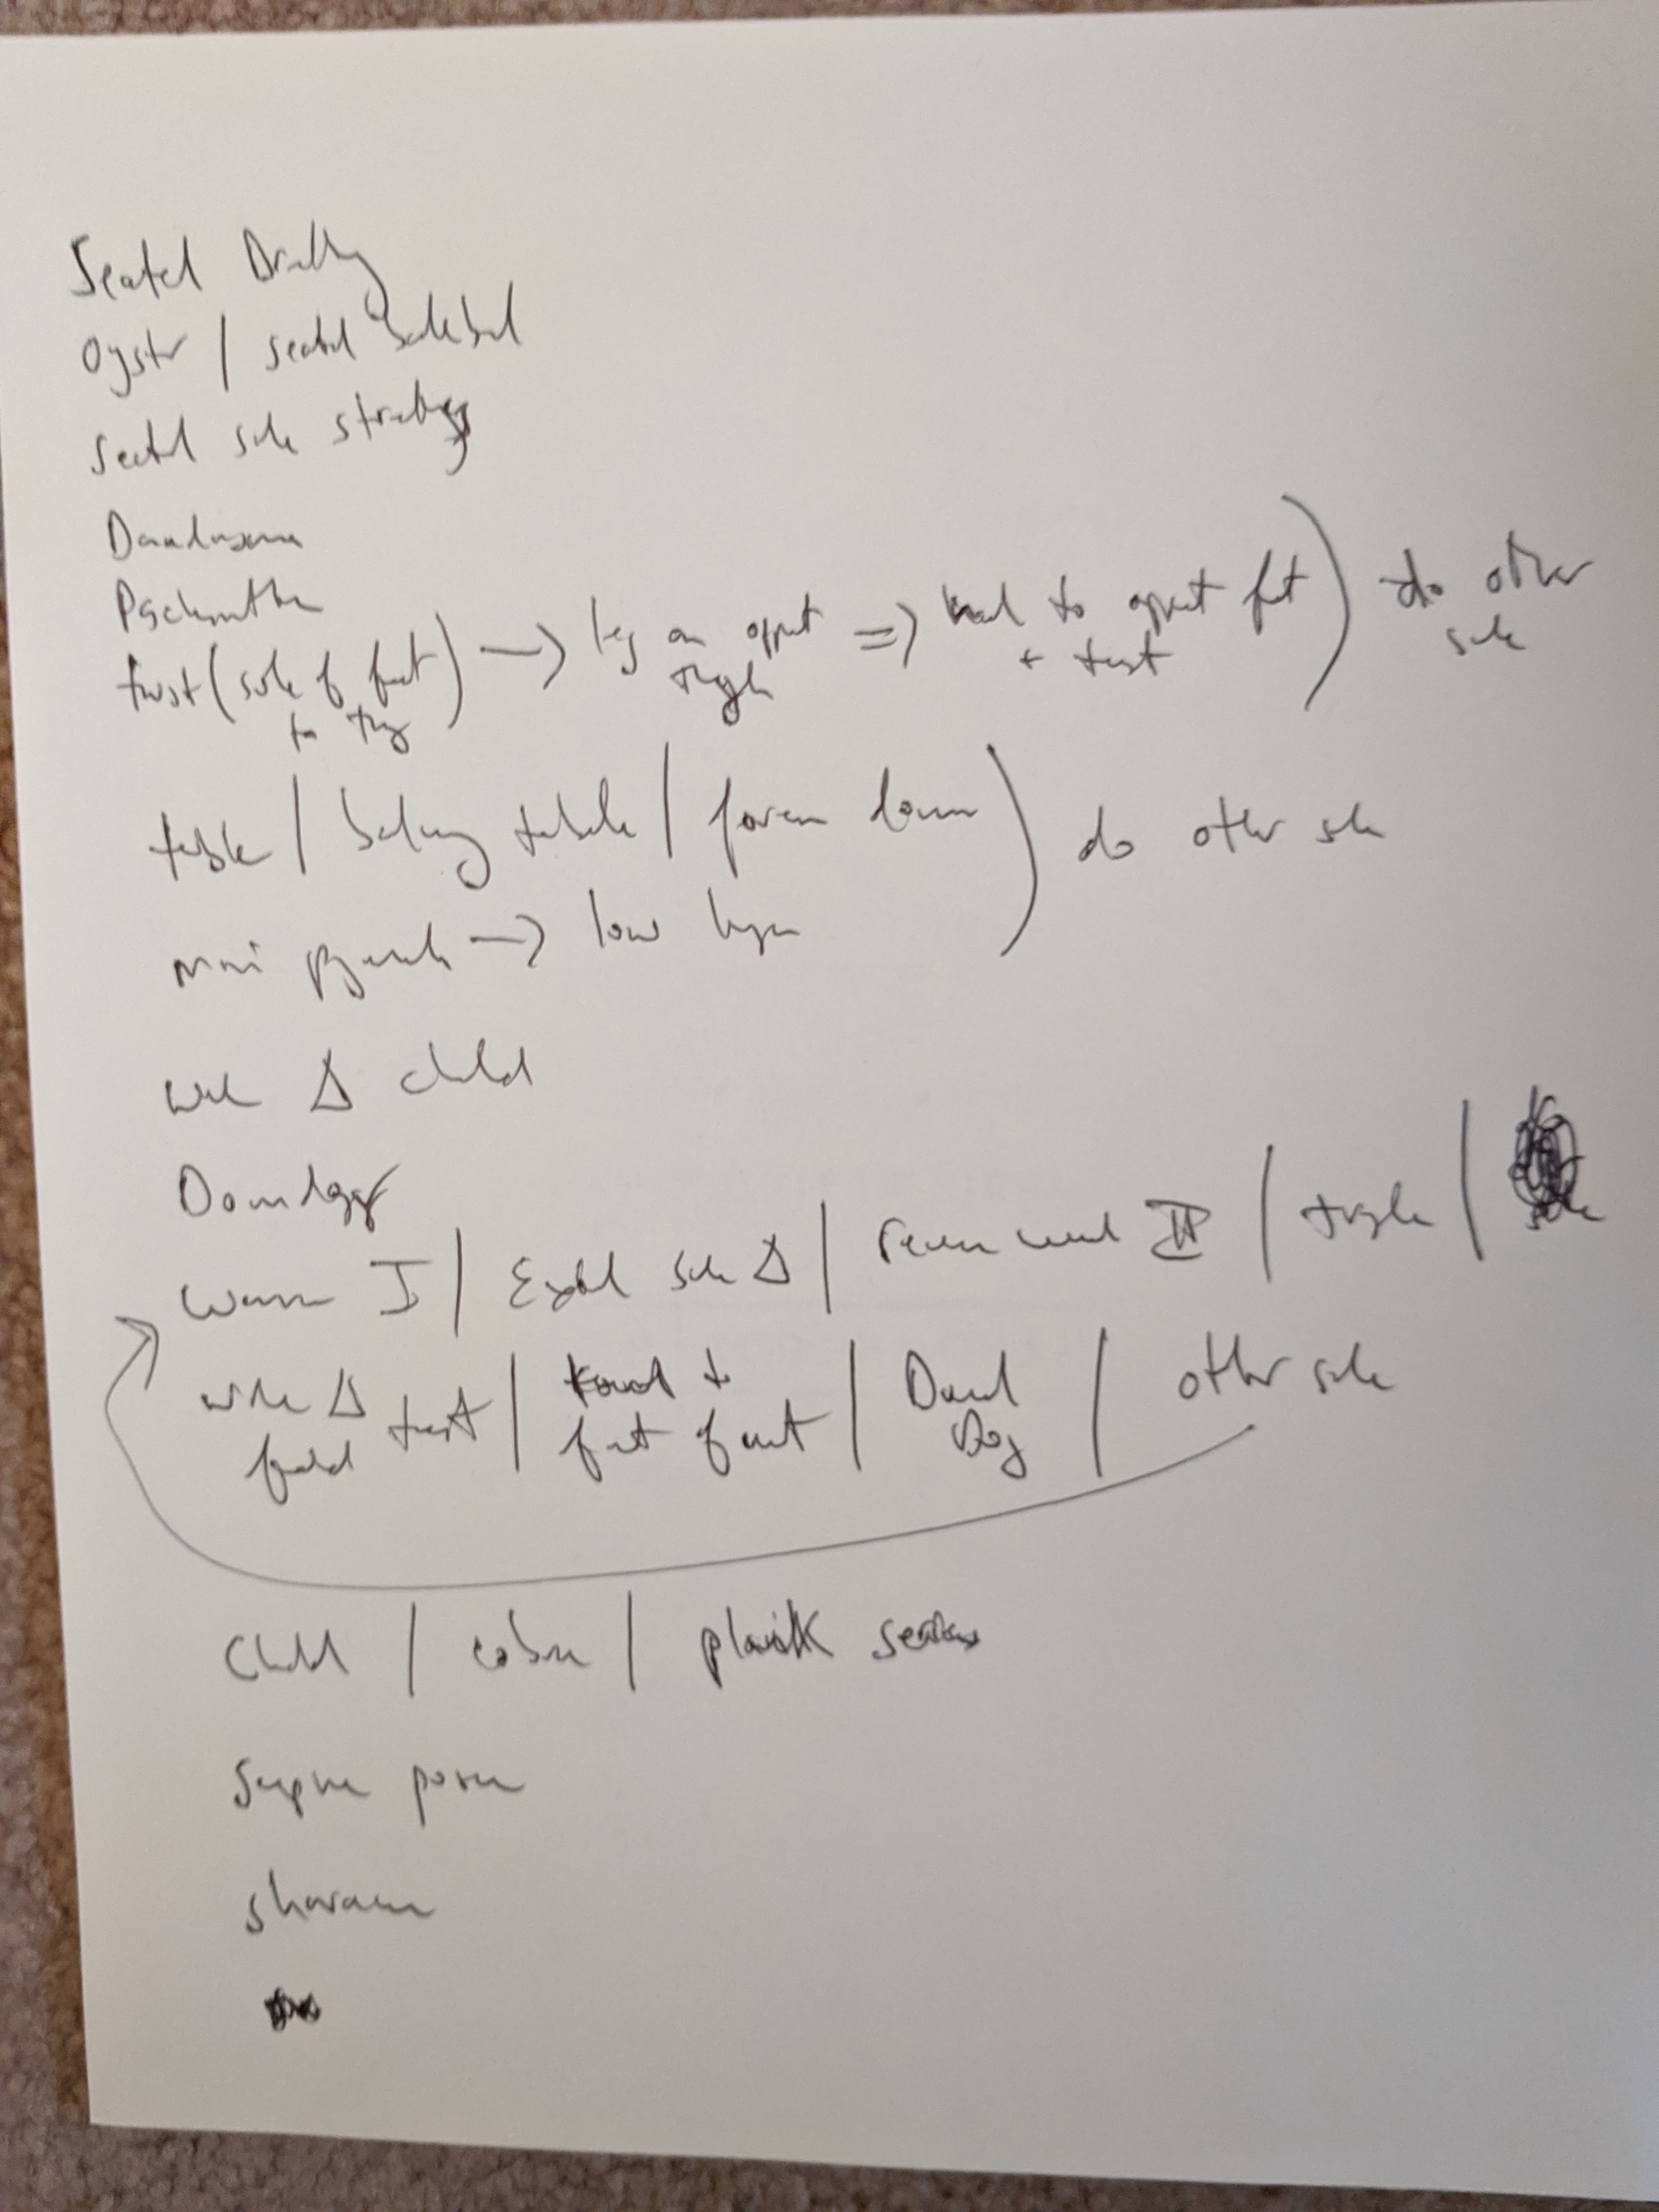 Seated Breathing
Oyster / seated backbend
Seated side stretching
Dandasana
twist (sole of foot to thigh) → leg on opposit thigh => hand to opposit foot + twist) do other side
table / balancing table / forearm down) do other side
mini pyramid → low lunge
wide Δ child
Down dog
Warrior I / Extend side Δ / reverse warrior II / triangle /
wide Δ fold twist / hand to foot front / Down Dog / other side
Child / cobra / plank series
Supine poses
shavasana